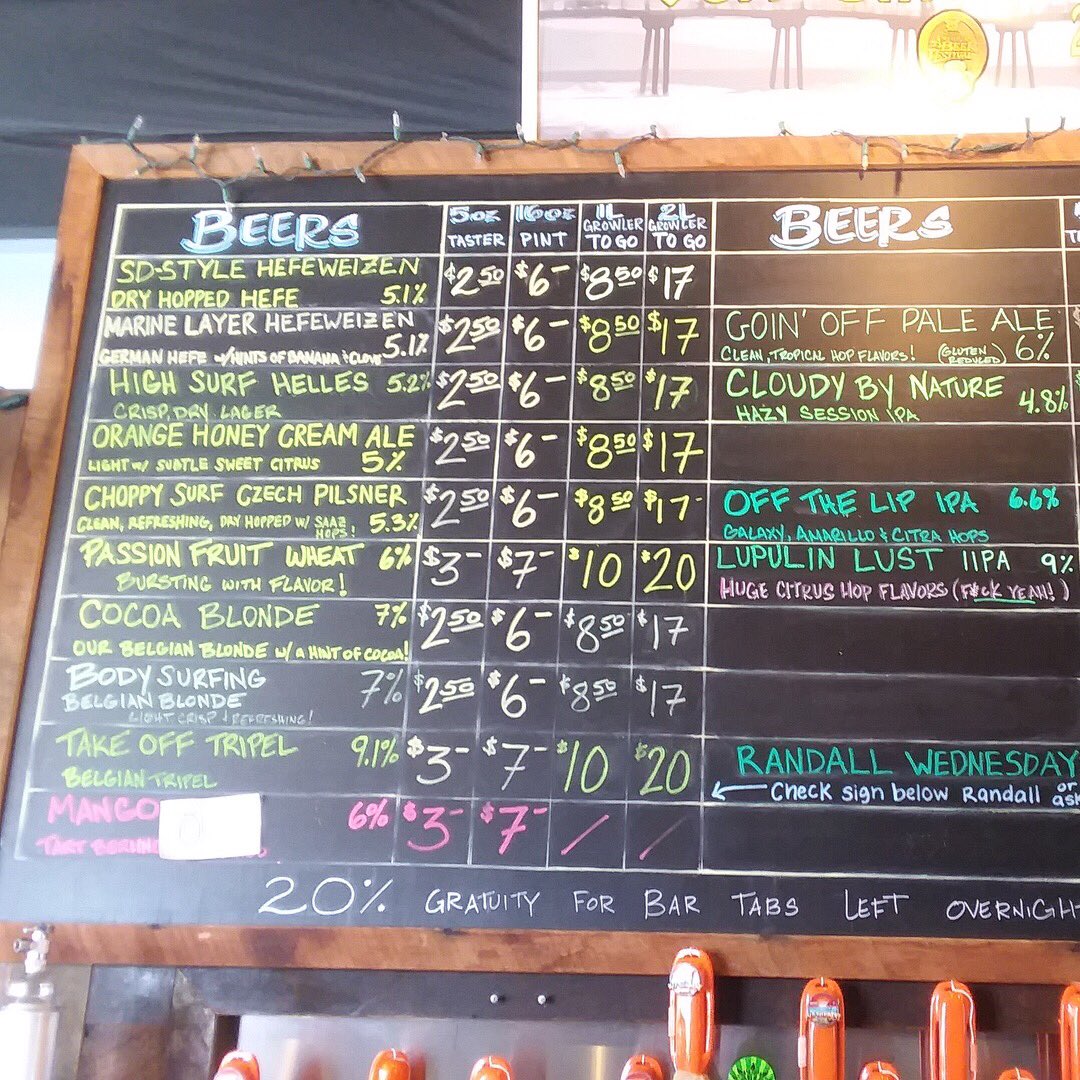 BEERS 5oz 16oz 1L 2L BEERS
TASTER PINT GROWLER TO GO GROWLER TO GO
SD-STYLE HEFEWEIZEN $2.50 $6- $8.50 $17
DRY HOPPED HEFE 5.1%
MARINE LAYER HEFEWEIZEN 5.1% $2.50 $6- $8.50 $17
GERMAN HEFE w/HINTS OF BANANA & CLOVE
HIGH SURF HELLES 5.2% $2.50 $6- $8.50 $17
CRISP, DRY LAGER
ORANGE HONEY CREAM ALE $2.50 $6- $8.50 $17
LIGHT w/ SUBTLE SWEET CITRUS 5%
CHOPPY SURF CZECH PILSNER $2.50 $6- $8.50 $17-
CLEAN, REFRESHING, DRY HOPPED W/ SAAZ HOPS! 5.3%
PASSION FRUIT WHEAT 6% $3- $7- $10 $20
BURSTING WITH FLAVOR!
COCOA BLONDE 7% $2.50 $6- $8.50 $17
OUR BELGIAN BLONDE w/ A HINT OF COCOA!
BODY SURFING 7% $2.50 $6- $8.50 $17
BELGIAN BLONDE
LIGHT CRISP & REFRESHING!
TAKE OFF TRIPEL 9.1% $3- $7- $10 $20
BELGIAN TRIPEL
MANGO 6% $3- $7- / /
TART
GOIN' OFF PALE ALE
CLEAN, TROPICAL HOP FLAVORS! (GLUTEN REDUCED) 6%
CLOUDY BY NATURE 4.8%
HAZY SESSION IPA
OFF THE LIP IPA 6.6%
GALAXY, AMARILLO & CITRA HOPS
LUPULIN LUST IIPA 9%
HUGE CITRUS HOP FLAVORS (F#CK YEAH!)
RANDALL WEDNESDAY
← Check sign below Randall or ask
20% GRATUITY FOR BAR TABS LEFT OVERNIGH